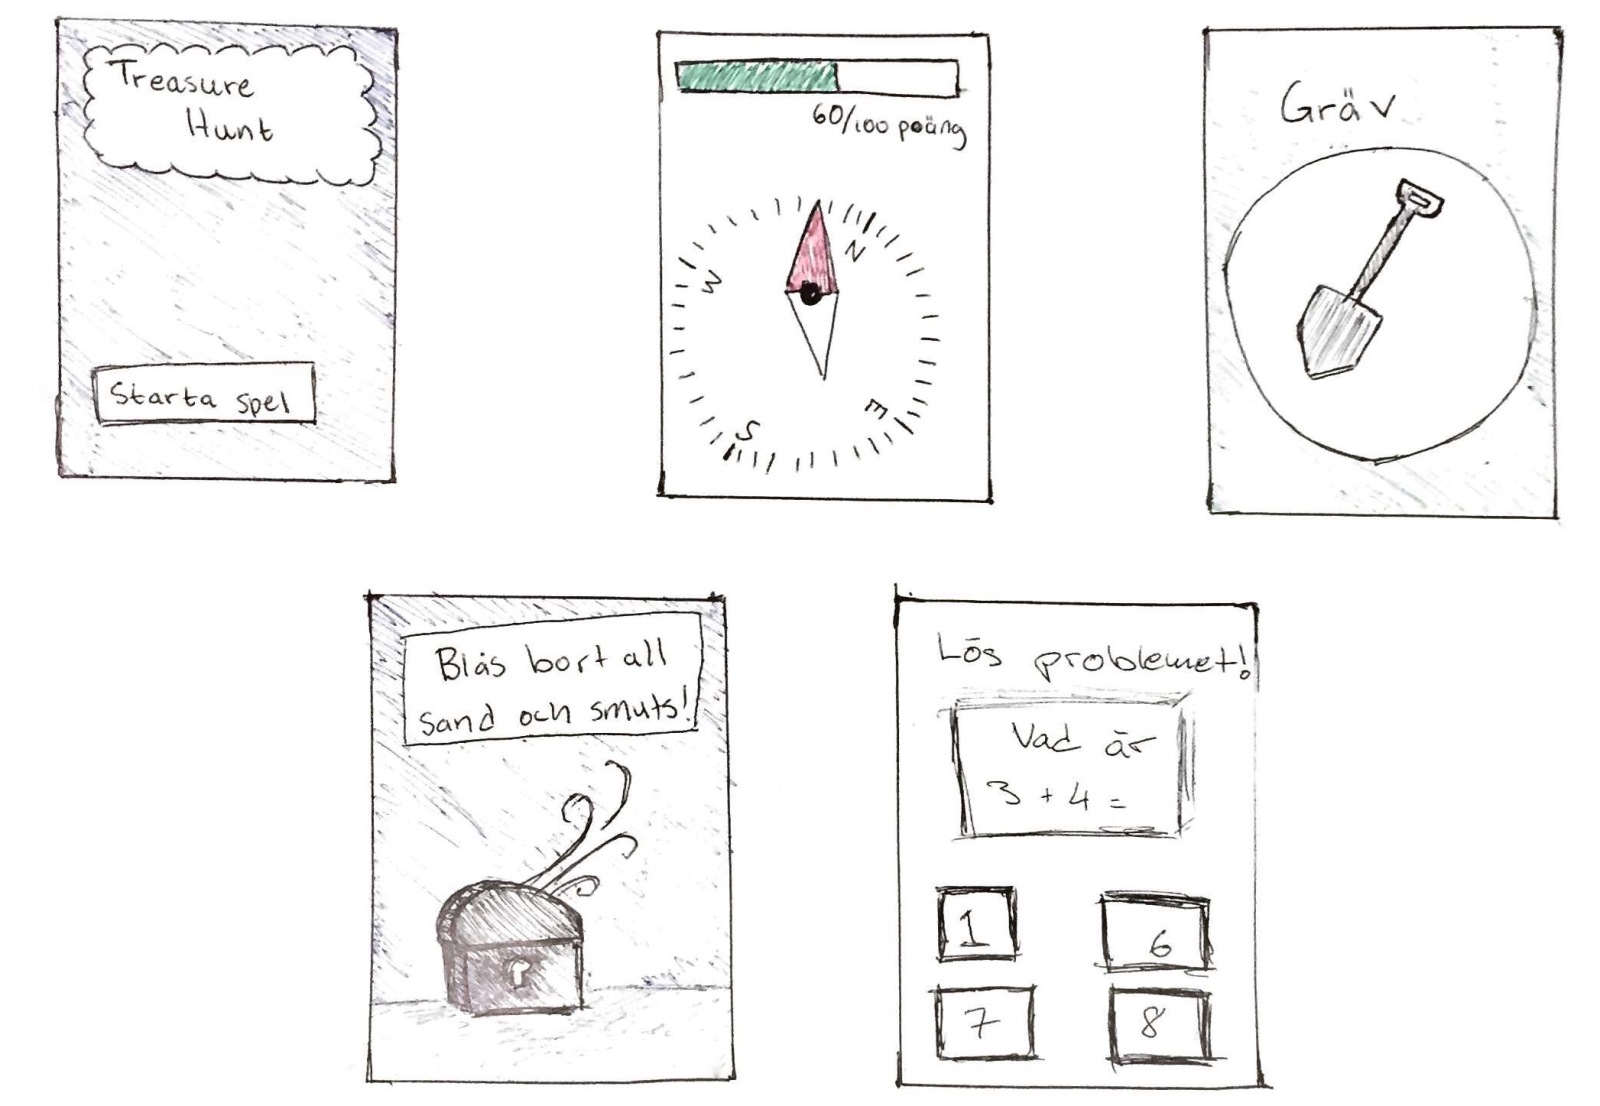 Treasure
Hunt
Starta spel
60/100 poäng
N
W
E
S
Gräv
Blås bort all
sand och smuts!
Lös problemet!
Vad är
3 + 4 =
1
6
7
8